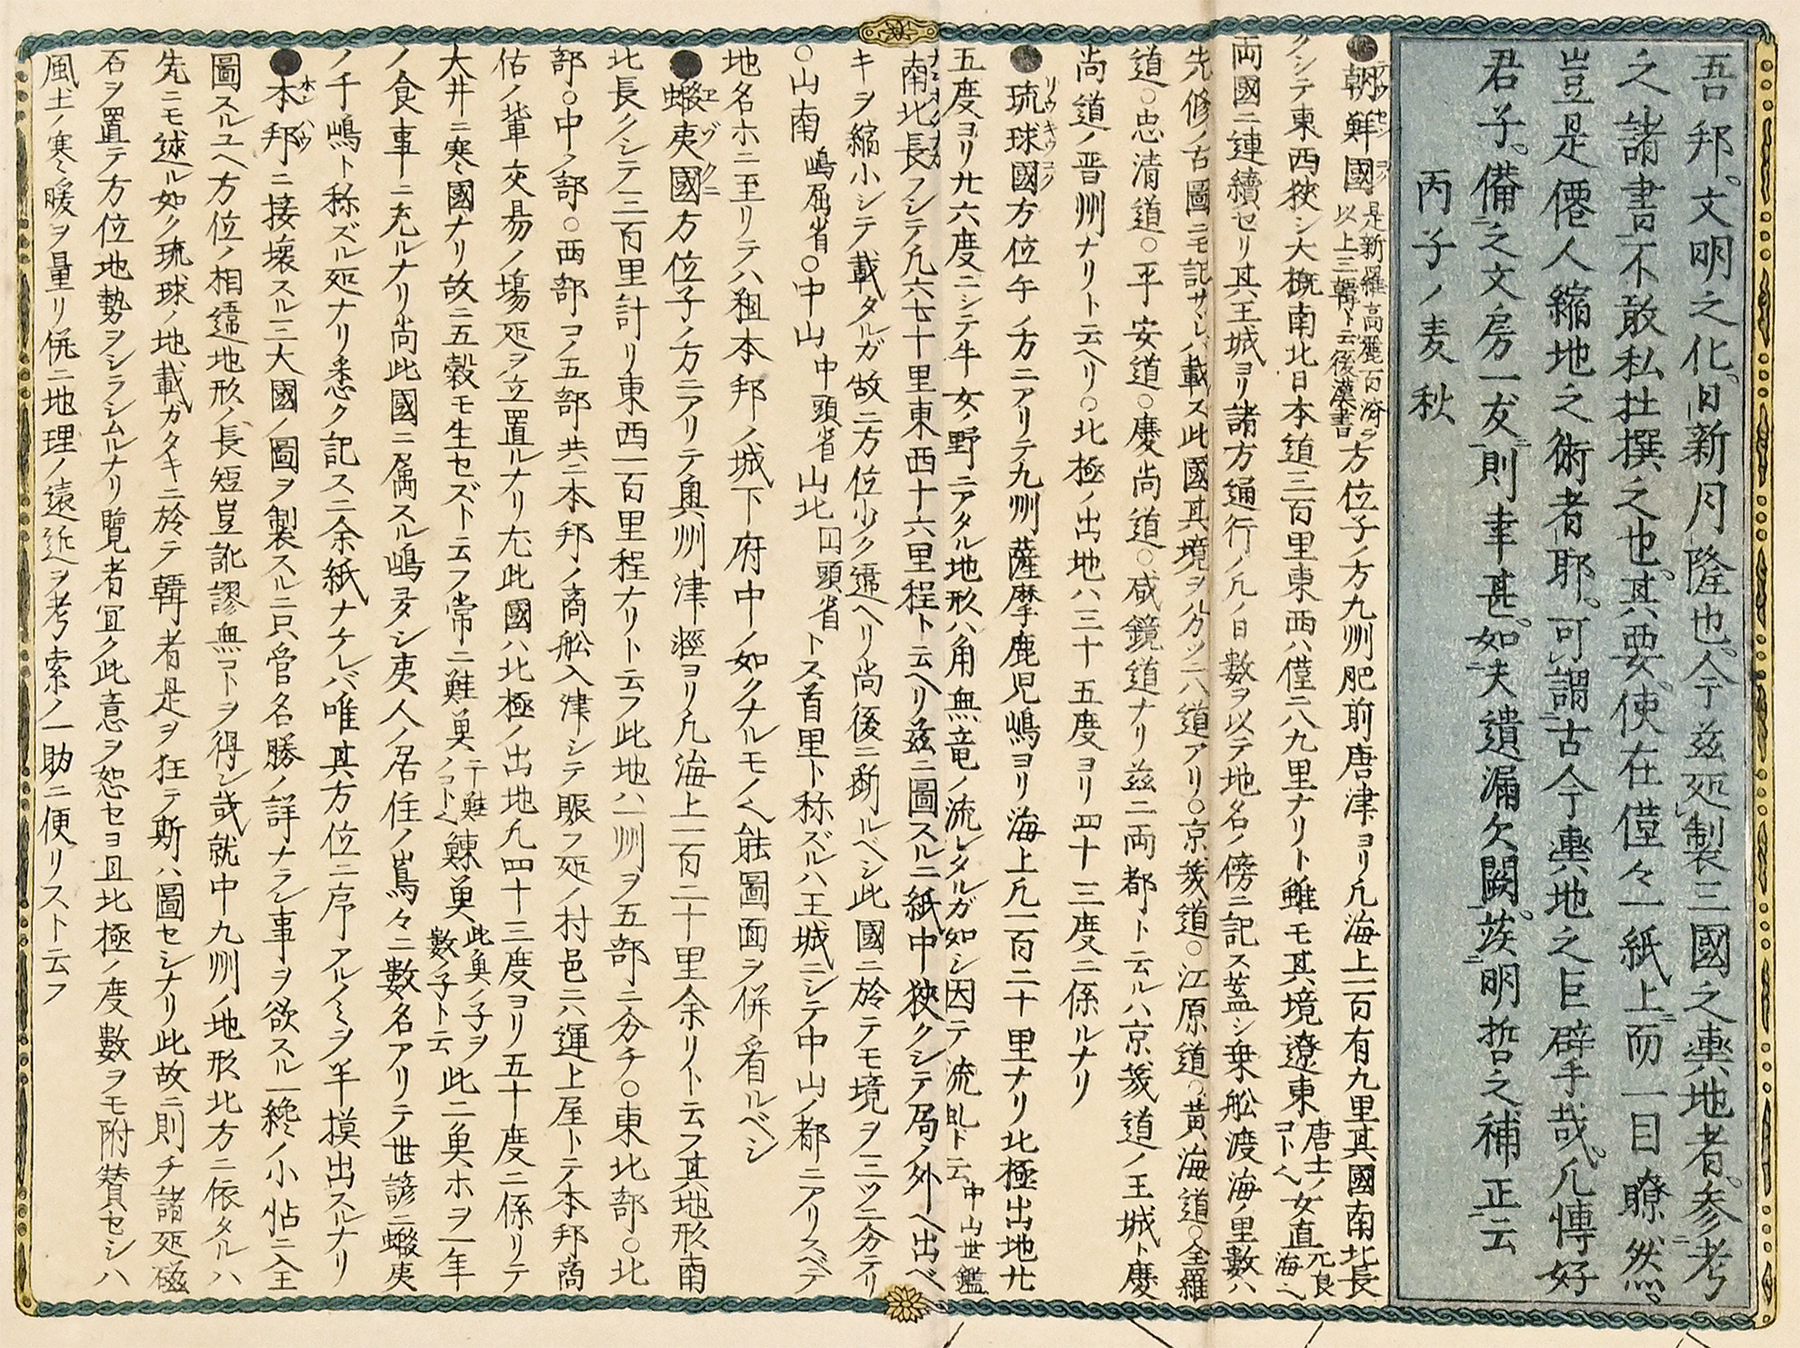 吾邦文明之化日新月隆也今茲処製三國之輿地者参考
之諸書不敢私拄撰之也其要使在僅々一紙上而一目瞭然
豈是僊人縮地之術者耶可謂古今輿地之巨擘手哉凡慱好
君子備之文房一友則幸甚如夫遺漏欠闕竢明哲之補正云
丙子ノ麦秋
●朝鮮國 是新羅高麗百済ヲ以上三韓ト云後漢書 方位子ノ方九州肥前唐津ヨリ凡海上一百有九里其國南北長
クシテ東西狹シ大槪南北日本道三百里東西ハ僅ニ八九里ナリト雖モ其境遼東 唐土ノコト也 女直 元良海ヘ
両國ニ連續セリ其王城ヨリ諸方通行ノ凡ノ日數ヲ以テ地名ノ傍ニ記ス蓋シ乗舩渡海ノ里數ハ
先修ノ古圖ニモ記サレバ載ス此國其境ヲ分ツニ八道アリ○京畿道○江原道○黃海道○全羅
道○忠清道○平安道○慶尚道○咸鏡道ナリ茲ニ両都ト云ルハ京畿道ノ王城ト慶
尚道ノ晋州ナリト云ヘリ○北極ノ出地ハ三十五度ヨリ四十三度ニ係ルナリ
●琉球國 リウキウコク 方位午ノ方ニアリテ九州薩摩鹿児嶋ヨリ海上凡一百二十里ナリ北極出地廿
五度ヨリ廿六度ニシテ牛女ノ野ニアタル地形ハ角無竜ノ流レタルガ如シ因テ流虬ト云 中山世鑑
南北長クシテ凡六七十里東西十六里程ト云ヘリ茲ニ圖スル紙中狹クシテ局ノ外ヘ出ベ
キヲ縮小シテ載タルガ故ニ方位少ク違ヘリ尚後ニ斷ルベシ此國ニ於テモ境ヲ三ツニ分テリ
○山南 嶋尻省 ○中山 中頭省 山北 国頭省 トス首里ト称ズルハ王城ニシテ中山ノ都ニアリスベテ
地名ホニ至リテハ粗本邦ノ城下府中ノ如クナルモノ也能圖面ヲ併看ルベシ
●蝦夷國 エゾクニ 方位子ノ方ニアリテ奥州津軽ヨリ凡海上一百二十里余リト云フ其地形南
北長クシテ三百里計リ東西一百里程ナリト云フ此地ハ一州ヲ五部ニ分チ○東北部○北
部○中ノ部○西部ヲノ五部共ニ本邦ノ商舩入津シテ賑フ処ノ村邑ニハ運上屋トテ本邦商
估ノ輩交易ノ塲処ヲ立置ルナリ尤此國ハ北極ノ出地凡四十三度ヨリ五十度ニ係リテ
大井ニ寒國ナリ故ニ五穀モ生セズト云フ常ニ鮭魚 干鮭ノコト也 鰊魚 此魚ノ子ヲ數ノ子ト云 此二魚ホヲ一年
ノ食事ニ充ルナリ尚此國ニ属スル嶋多シ夷人ノ居住ノ嶌々ニ數名アリテ世諺ニ蝦夷
ノ千嶋ト称ズル処ナリ悉ク記スニ余紙ナケレバ唯其方位ニ序アルノミヲ半摸出スルナリ
●本邦 ホンハウ ニ接壊スル三大國ノ圖ヲ制スルニ只管名勝ノ詳ナラン事ヲ欲スル一綣ノ小帖ニ入
圖スルユヘ方位ノ相違地形ノ長短豈訛謬無コトヲ得ン哉就中九州ノ地形北方ニ依タルハ
先ニモ逑ル如ク琉球ノ地載ガタキニ於テ韓者是ヲ狂テ斯ハ圖セシナリ此故ニ則チ諸処磁
石ヲ置テ方位地勢ヲシラシムルナリ覽者宜ク此意ヲ恕セヨ且北極ノ度數ヲモ附賛セシハ
風土ノ寒暖ヲ量リ併ニ地理ノ遠近ヲ考索ノ一助ニ便リスト云フ